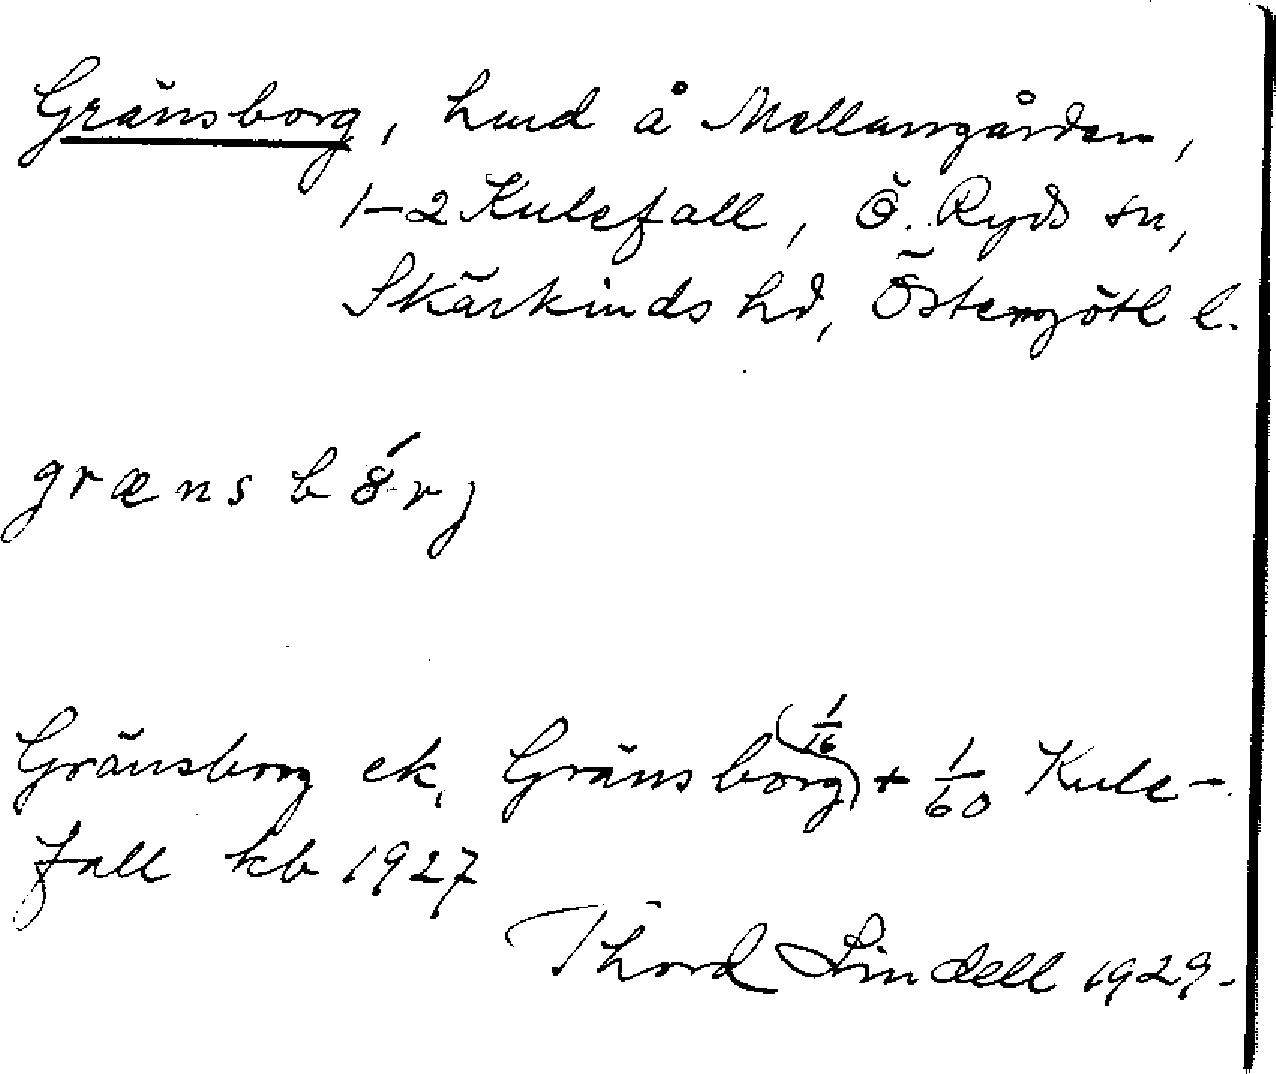 Gränsborg, hmd å Mellangården,
1-2 Kulefall, Ö. Ryds sn,
Skärkinds hd, Östergötl l.
grænsbórj
Gränsborg ek, Gränsborg (1/16) + 1/60 Kule-
fall kb 1927
Thord Lindell 1929.